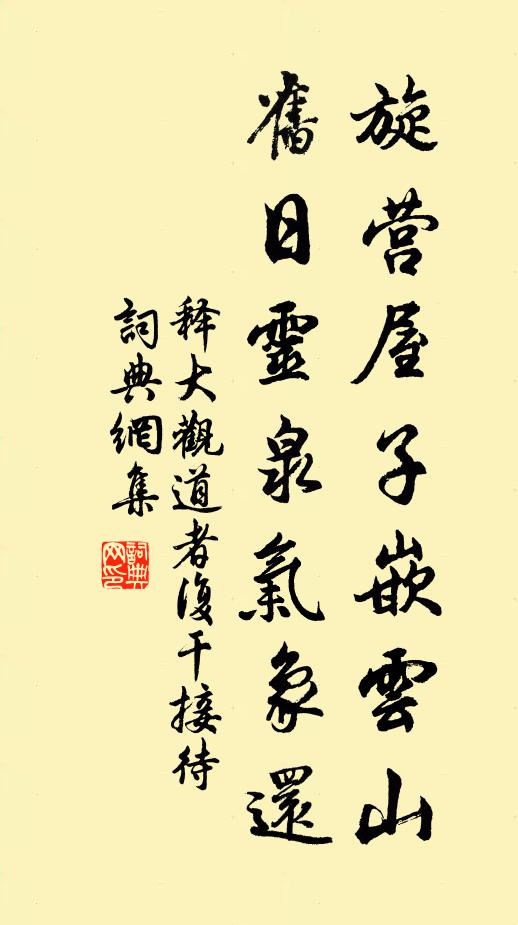 旋营屋子嵌雲山
舊日靈泉氣象還
释大觀道者復干接待
詞典網集
詞典网印